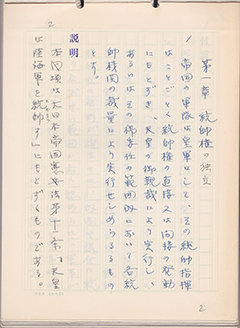 2
第一章 統帥権の独立
1 帝国の軍隊は皇軍にして、その統帥指揮
はことごとく統帥権の直接又は間接の発動
にもとずき、天皇の御親裁により実行し、
あるいはその御委任の範囲内において各統
帥機関の裁量により実行せしめらるるもの
とす。
説明
本条項は大日本帝国憲法第十一条「天皇
は陸海軍を統帥す」にもとずくものである。
2